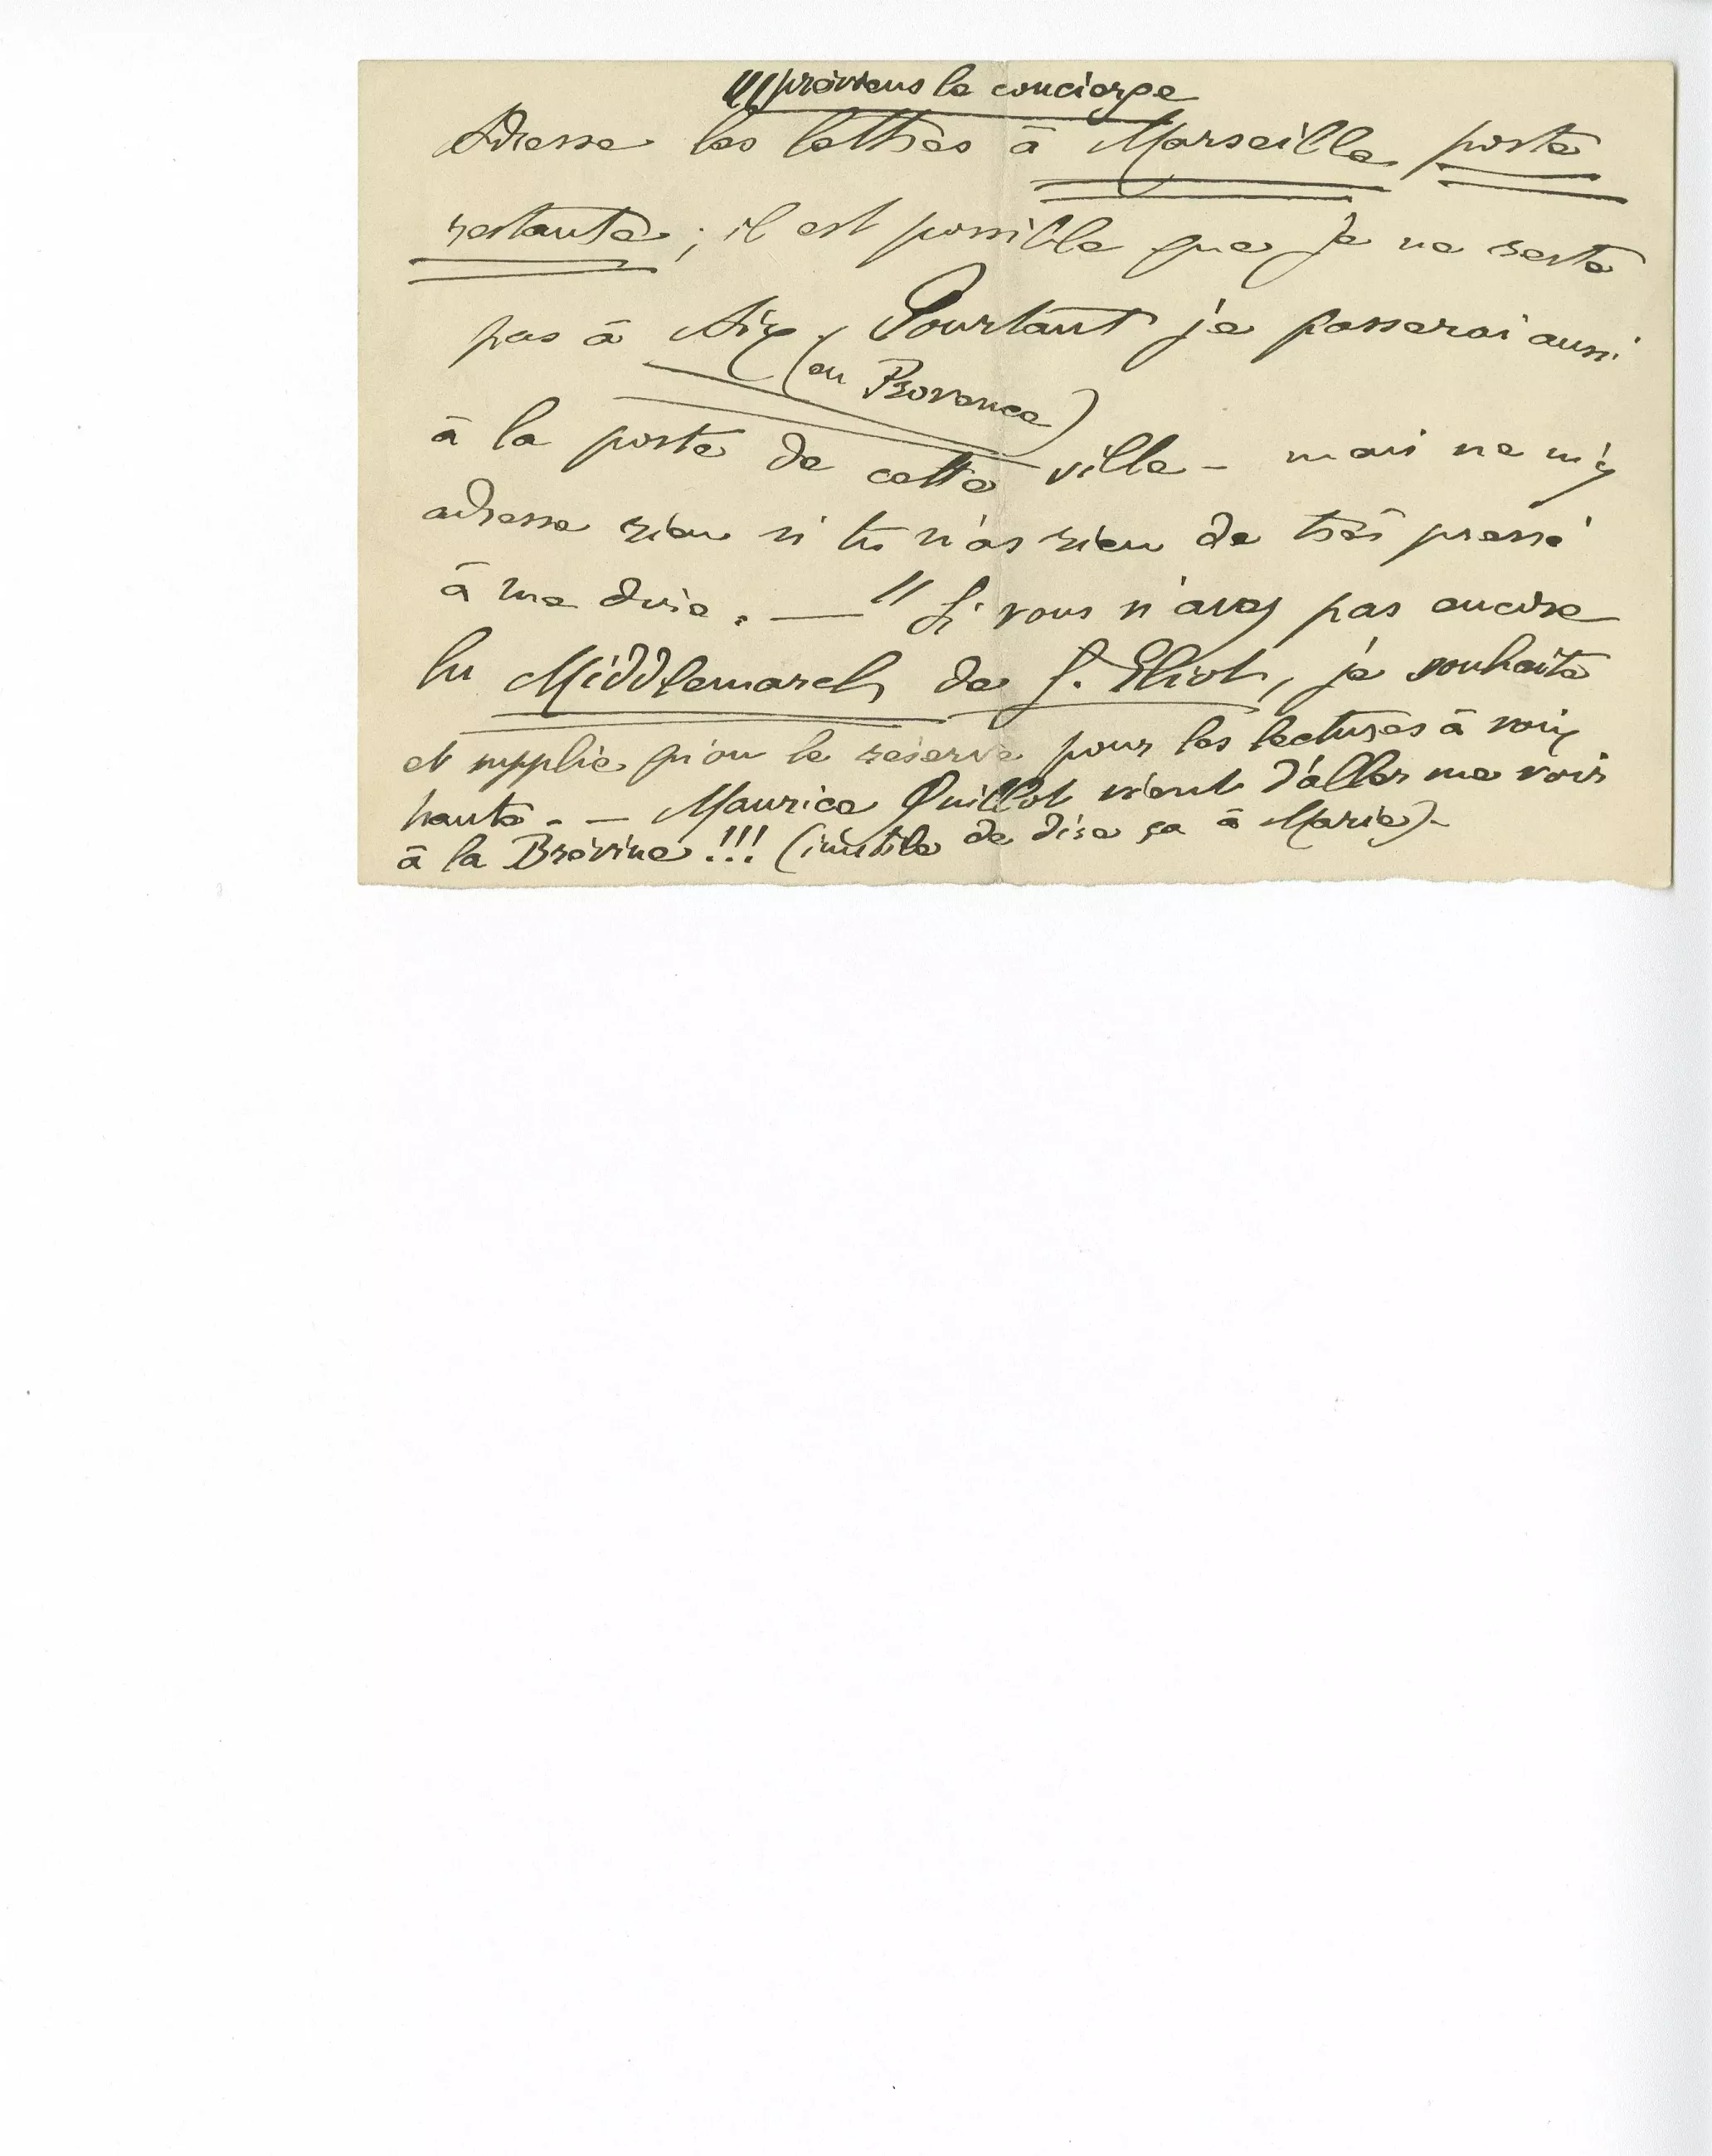 !!! préviens la concierge
Adresse les lettres à Marseille poste
restante ; il est possible que je ne reste
pas à Aix. Pourtant je passerai aussi
(en Provence)
à la poste de cette ville – mais ne m'y
adresse rien si tu n'as rien de très pressé
à me dire. — // Si vous n'avez pas encore
lu Middlemarch de G. Eliot, je souhaite
et supplie qu'on le réserve pour les lectures à voix
haute. — Maurice Quillot vient d'aller me voir
à la Brévine !!! (inutile de dire ça à Marie) –